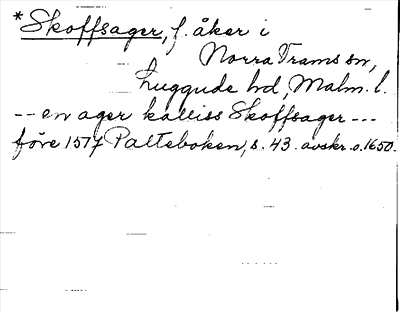 *Skoffsager, f. åker i
Norra Trams sn,
Luggude hd, Malm. l.
-- en ager kalliss Skoffsager ---
före 1577 Palteboken, s. 43. avskr. o. 1650.